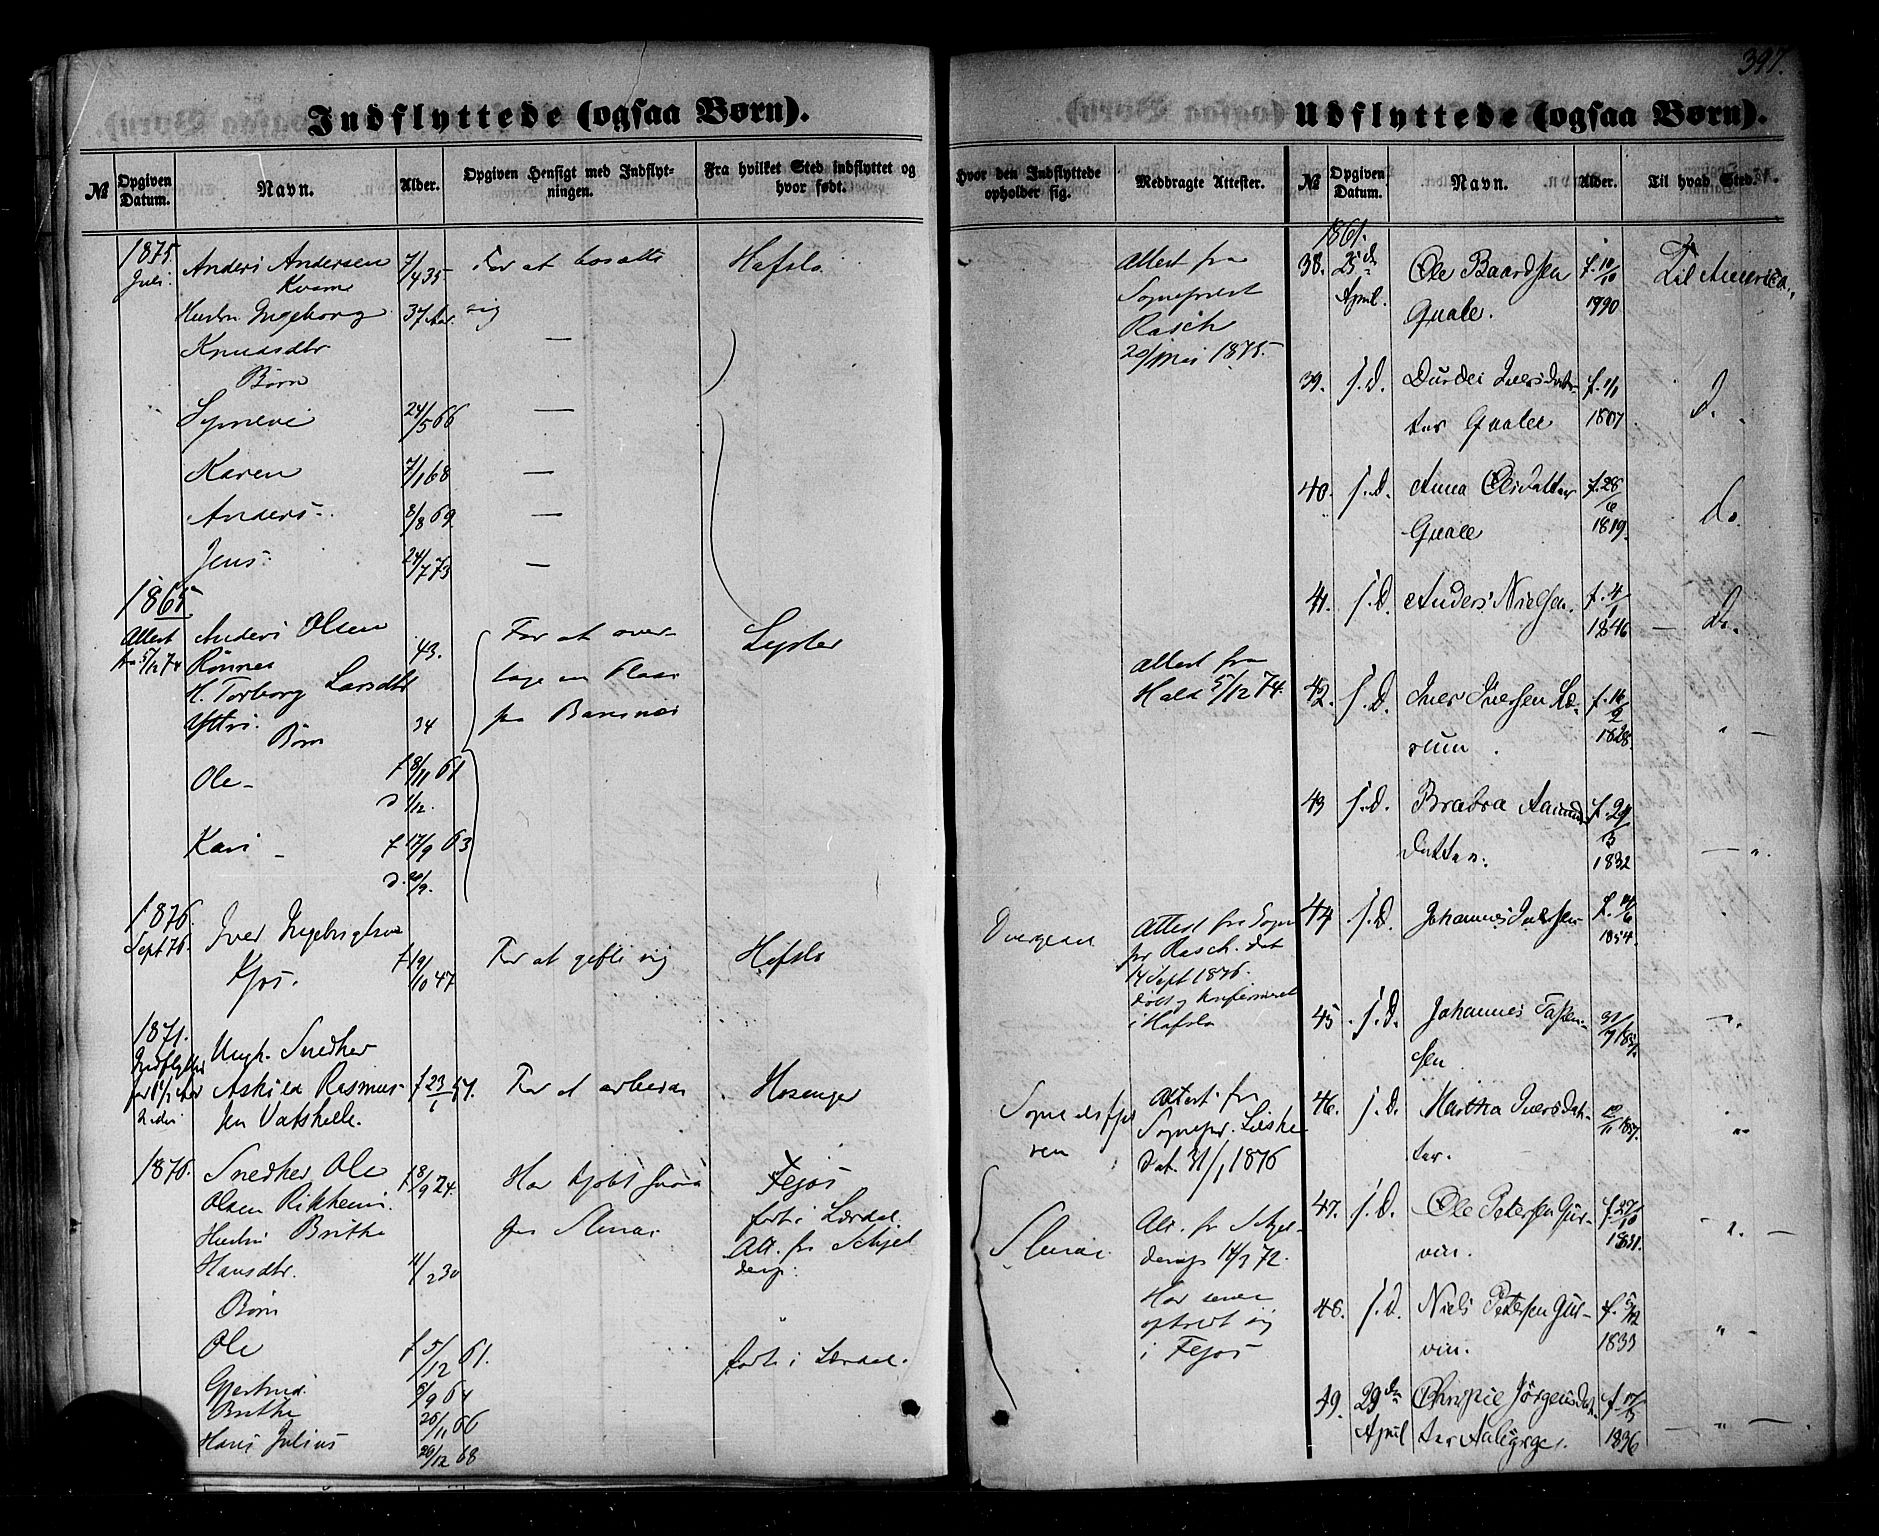 397.
Indflyttede (ogsaa Børn).
№
Opgiven Datum.
Navn.
Alder.
Opgiven Hensigt med Indflyt-
ningen.
Fra hvilket Sted indflyttet og
hvor født.
Hvor den Indflyttede
opholder sig.
Medbragte Attester.
1875.
Juli.
Anders Andersen
Kvame
7/4 35
For at bosætte
Hafslo
Attest fra
Sognepræst
Rasch
20/Mai 1875.
Hustru Ingeborg
37 Aar
sig
Knudsdtr
Børn
Synneve
24/5 66
Karen
7/1 68
Anders
8/8 69
Jens
24/7 73
1865.
Attest
fra 5/12 74
Anders Olsen
Rønnes
43.
For at over-
tage en Plads
paa
Lyster
Attest fra
Hald 5/12 74.
H. Torborg Larsdtr
Yttri.
34
Børn
Ole
f 8/11 61
Kari
f 17/9 63
1876.
Sept 76.
Iver Ingebrigtsen
Kjos.
f 19/10 47
For at gifte sig
Hafslo
Attest fra Sogne
pr Rasch. dat
14 Sept 1876.
døbt og konfirmeret
i Hafslo
1871.
Indflyttet
for 1 1/2 Aar
siden
Ungk. Snedker
Askild Rasmus-
sen Vatshelle.
f 23
For at arbeide
Hosanger
Attest fra
Sognepr.
dat. 31/1 1876
1876.
Snedker Ole
Olsen
f 8/9 24.
Har kjøbt
paa
Fejos
født i Lærdal.
Att. fra Schjel
derup.
Att. fr Schjel-
derup 14/3 72.
Har senere
opholdt sig
i Fejos
Hustru Brithe
Hansdtr.
11/2 30
Børn
Ole
f 5/12 61.
født i Lærdal.
Gjertrud
6/9 64
Brithe
Hans Julius
20/12 68
Udflyttede (ogsaa Børn).
№
Opgiven Datum.
Navn.
Alder.
Til hvad Sted.
1861.
38.
25de
April.
Ole Baardsen
Quale.
f. 10/10
1790
Til America.
39.
s. D.
Durdei Iversdat-
ter Quale
f. 1/1
1807.
D.
40.
s. D.
Anna Olsdatter
Quale
f. 28/6
1819.
Do.
41.
s. D.
Anders Nielsen.
f. 4/1
1846
Do.
42.
s. D.
Iver Iversen Læ-
rum.
f. 16/2
1828
"
43
s. D.
Brabra Aamund
datter.
1832
"
44
s. D.
Johannes Iversen
1854.
"
45
s. D.
Johannes
sen
"
46.
s. D.
Martha Iversdat-
ter.
"
47.
s. D.
Ole Petersen Gur-
vin.
f. 27/10
1831.
"
48.
s. D.
Niels Petersen Gur-
vin.
f. 5/12
1833
"
49.
29de
April
Jørgensdat-
ter
1836
"